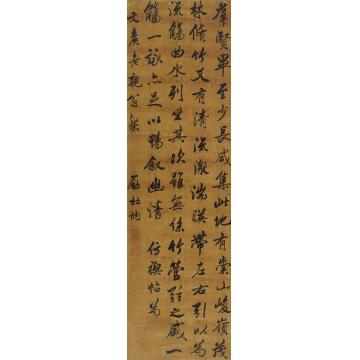 羣賢畢至少長咸集此地有崇山峻嶺茂
林脩竹又有清流激湍暎帶左右引以為
流觴曲水列坐其次雖無絲竹管弦之盛一
觴一詠亦足以暢敘幽情 仿禊帖為
文 老親翁